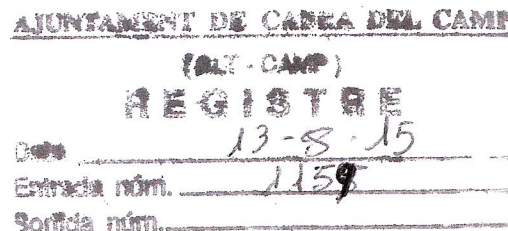 AJUNTAMENT DE CABRA DEL CAMP
(ALT - CAMP)
REGISTRE
Data 13-8-15
Entrada núm. 1159
Sortida núm.